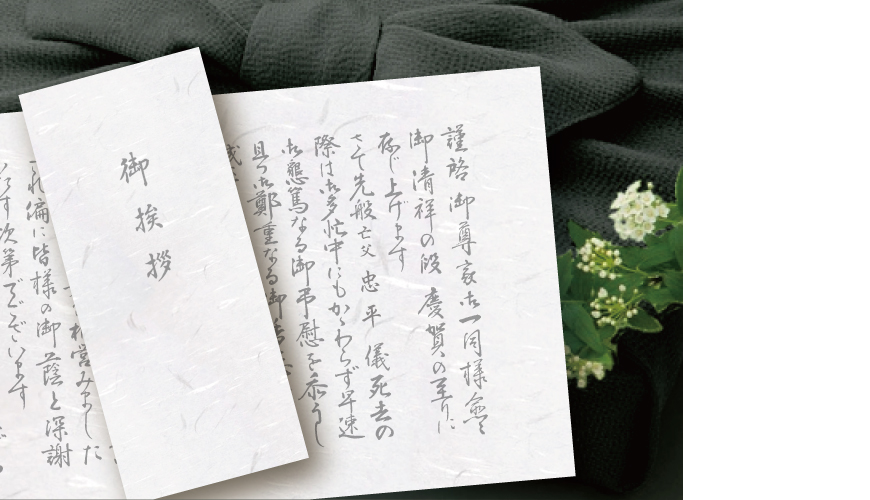 御挨拶
謹啓 御尊家御一同様愈々
御清祥の段 慶賀の至りに
存じ上げます
さて先般亡父 忠平 儀死去の
際は御多忙中にもかゝわらず早速
御懇篤なる御弔慰を忝うし
且つ御鄭重なる御
営みました
これ偏に皆様の御蔭と深謝
す次第でございます